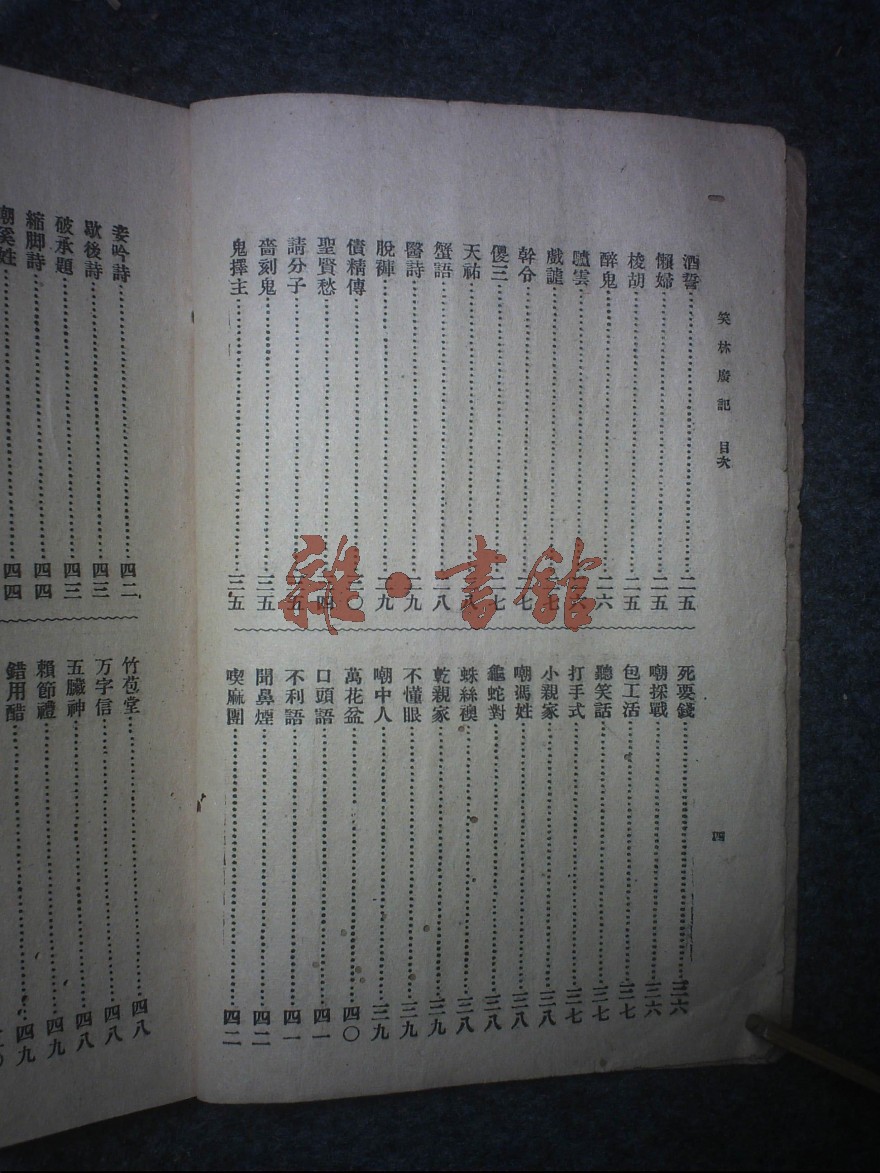 笑林廣記 目次
四
酒誓 二五
懶婦 二五
梭胡 二五
醉鬼 二六
噓雲
戲謔
幹令
傻三
天祐
蟹語 二八
醫詩 二九
脫褲
債精傳
聖賢愁
請分子
嗇刻鬼 三五
鬼擇主 三五
死要錢 三六
嘲採戰 三六
包工活 三七
聽笑話 三七
打手式 三七
小親家 三八
嘲馮姓 三八
龜蛇對 三八
蛛絲襖 三八
乾親家 三九
不懂眼 三九
嘲中人 三九
萬花盆 四〇
口頭語 四一
不利語 四一
聞鼻煙 四二
喫麻團 四二
妾吟詩 四二
歇後詩 四三
破承題 四三
縮脚詩 四四
嘲奚姓 四四
竹苞堂 四八
万字信 四八
五臟神 四八
賴節禮 四九
錯用醋 四九
雜·書館